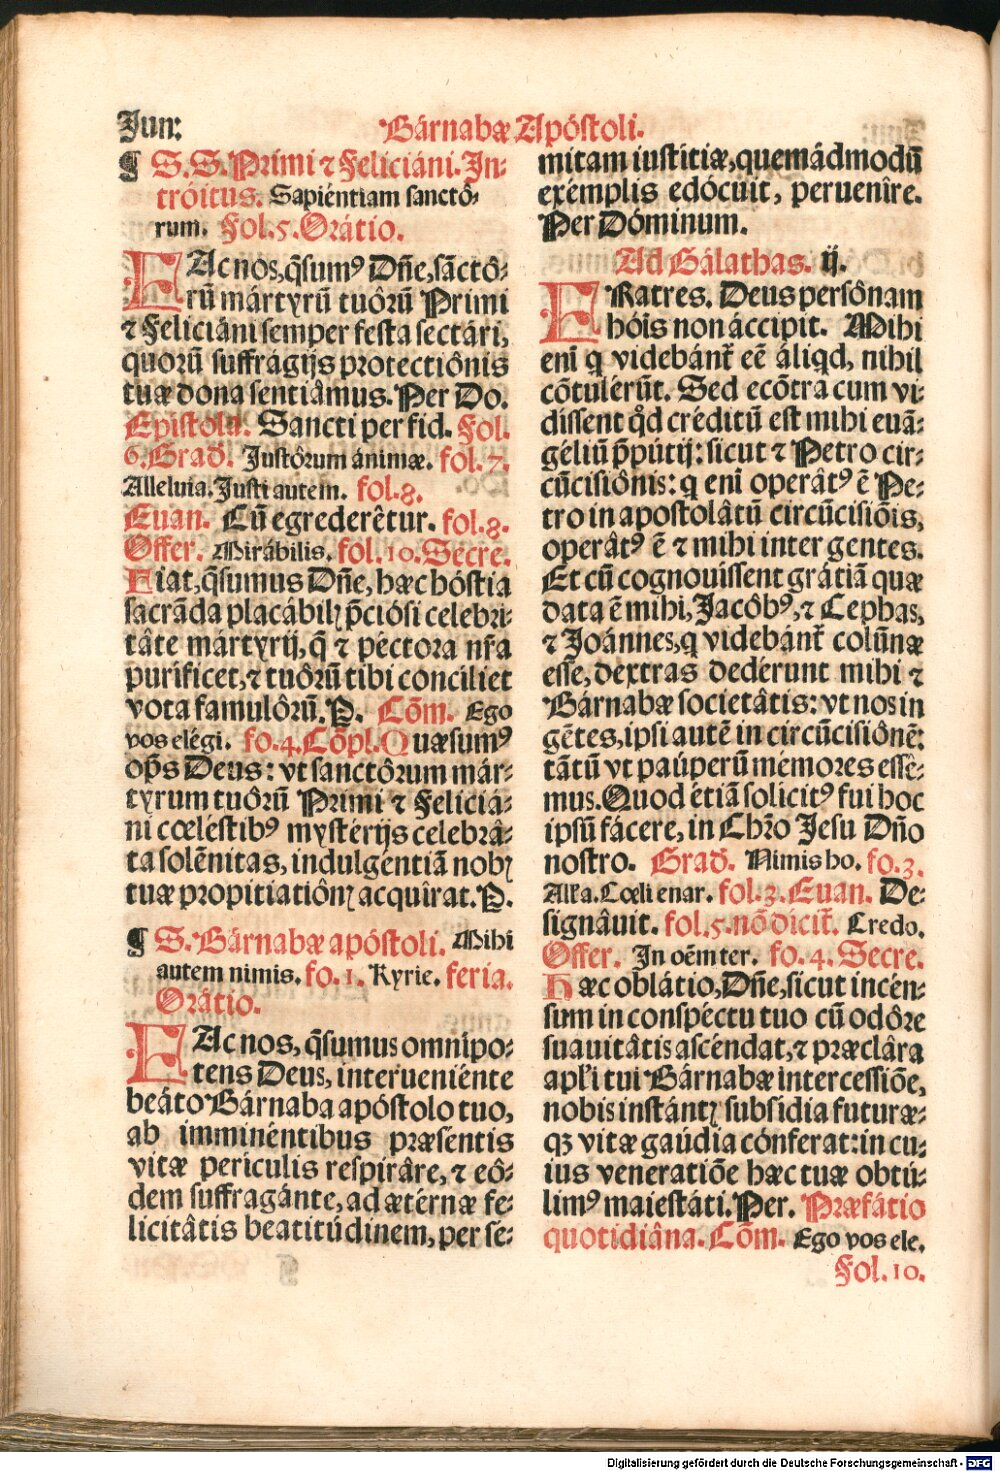 Jun:
Bárnabæ Apóstoli.
¶ S.S. Primi ⁊ Feliciáni. In-
tróitus. Sapiéntiam sanctô-
rum. Fol.5. Orátio.
FAc nos, q̃sumꝰ Dñe, sãctô-
rũ mártyrũ tuôrũ Primi
⁊ Feliciáni semper festa sectári,
quorũ suffrágijs protectiônis
tuæ dona sentiâmus. Per Do.
Epistola. Sancti per fid. Fol.
6. Grad̃. Justôrum ánimæ. fol.7.
Alleluia. Justi autem. fol.8.
Euan. Cũ egrederêtur. fol.8.
Offer. Mirábilis. fol.10. Secre.
Fiat, q̃sumus Dñe, hæc hóstia
sacrãda placábilꝭ p̃ciósi celebri-
tâte mártyrij, q̃ ⁊ péctora nr̃a
purificet, ⁊ tuôrũ tibi conciliet
vota famulôrũ. P. Cõm. Ego
vos elégi. fo.4. Cõpl. Quæsumꝰ
op̃s Deus: vt sanctôrum már-
tyrum tuôrũ Primi ⁊ Feliciá-
ni cœlestibꝰ mystérijs celebrâ-
ta solẽnitas, indulgentiã nobꝭ
tuæ propitiatiônꝭ acquîrat. P.
¶ S. Bárnabæ apóstoli. Mihi
autem nimis. fo.1. Kyrie. feria.
Orâtio.
FAc nos, q̃sumus omnipo-
tens Deus, interueniénte
beáto Bárnaba apóstolo tuo,
ab imminéntibus præsentis
vitæ periculis respirâre, ⁊ eô-
dem suffragánte, ad ætérnæ fe-
licitâtis beatitúdinem, per se-
mitam iustitiæ, quemádmodũ
exémplis edócuit, peruenîre.
Per Dóminum.
Ad Gálathas. ij.
FRatres. Deus persônam
hóis non áccipit. Mihi
enĩ q videbánt̃ eẽ áliqd, nihil
cõtulérũt. Sed ecõtra cum vi-
dissent qd̃ créditũ est mihi euã-
géliũ p̃pútij: sicut ⁊ Petro cir-
cũcisiônis: q enĩ operâtꝰ ẽ Pe-
tro in apostolâtũ circũcisiõis,
operâtꝰ ẽ ⁊ mihi inter gentes.
Et cũ cognouissent grátiã quæ
data ẽ mihi, Jacôbꝰ, ⁊ Cephas,
⁊ Joánnes, q videbánt̃ colũnæ
esse, dextras dedérunt mihi ⁊
Bárnabæ societâtis: vt nos in
gẽtes, ipsi autẽ in circũcisiônẽ:
tãtũ vt paúperũ mémores essê-
mus. Quod étiã solicitꝰ fui hoc
ipsũ fácere, in Chr̃o Jesu Dño
nostro. Grad̃. Nimis ho. fo.3.
Alľa. Cœli enar. fol.3. Euan. De-
signâuit. fol.5. nõ dicit̃. Credo.
Offer. In oẽm ter. fo.4. Secre.
Hæc oblátio, Dñe, sicut incén-
sum in conspéctu tuo cũ odôre
suauitâtis ascéndat, ⁊ præclâra
apľi tui Bárnabæ intercessiõe,
nobis instántꝭ subsídia futuræ-
qꝫ vitæ gaúdia cónferat: in cu-
ius veneratiõe hæc tuæ obtú-
limꝰ maiestáti. Per. Præfátio
quotidiâna. Cõm. Ego vos ele.
Fol.10.
Digitalisierung gefördert durch die Deutsche Forschungsgemeinschaft - DFG